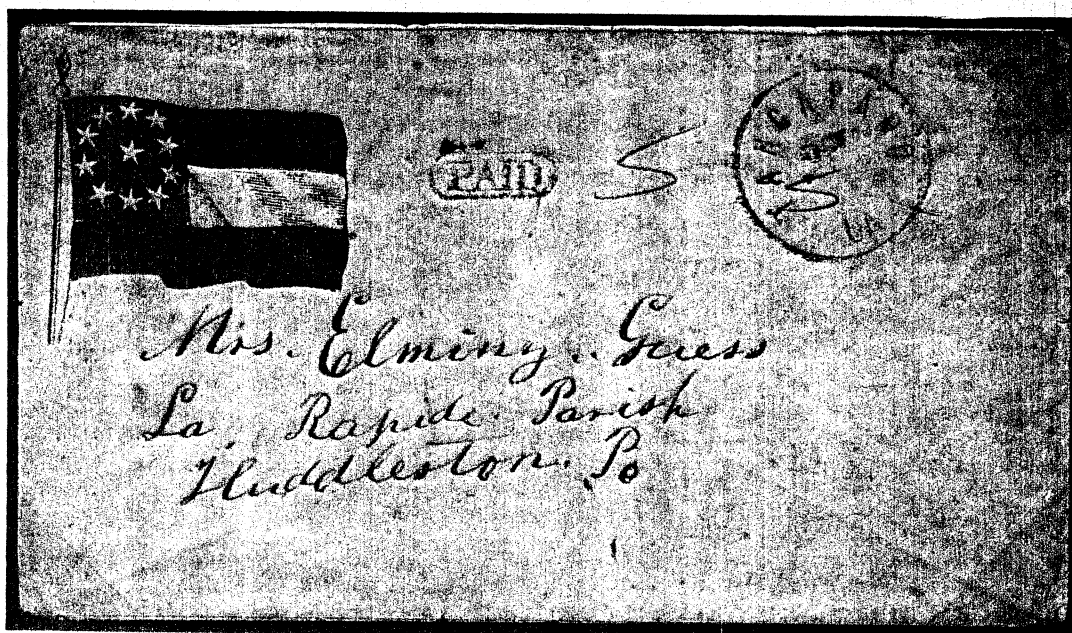 PAID 5
Mrs. Elminy Guess
La Rapide Parish
Huddleston Po